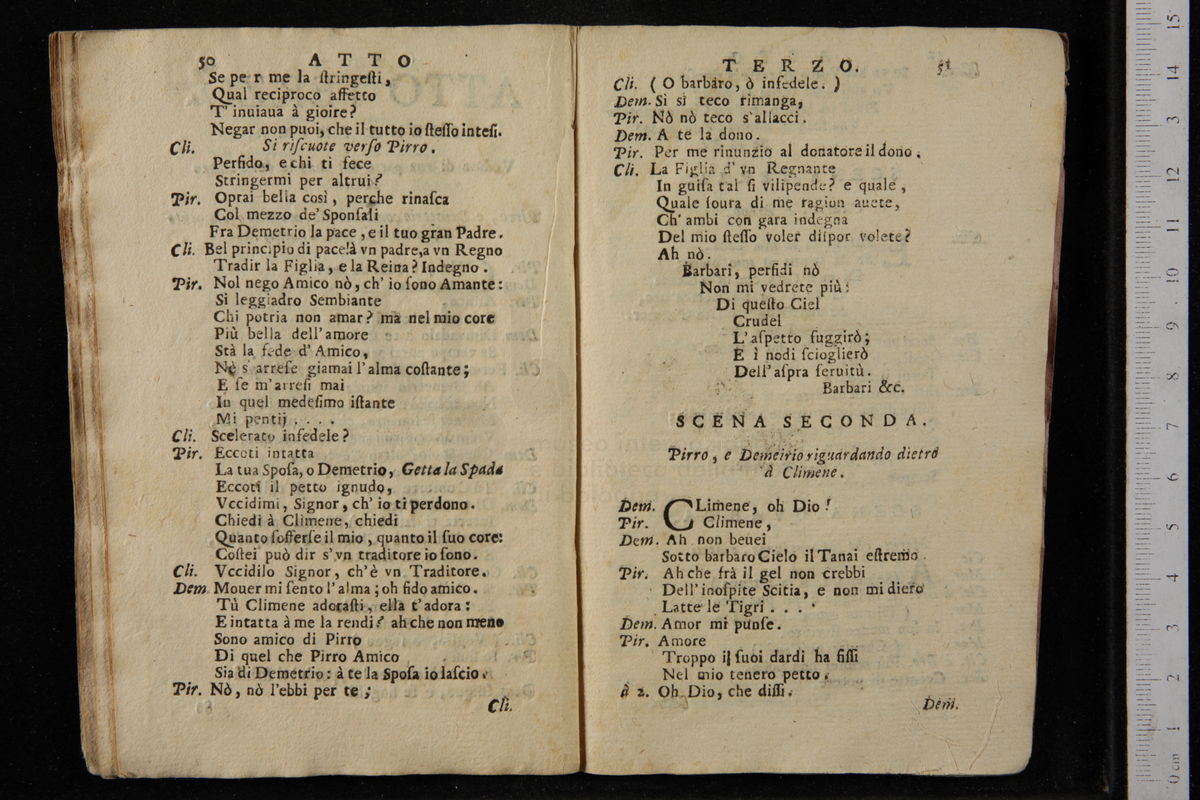 50 ATTO
Se per me la ſtringeſti,
Qual reciproco affetto
T' inuiaua à gioire?
Negar non puoi, che il tutto io ſteſſo inteſi.
Cli. Si riſcuote verſo Pirro.
Perfido, e chi ti fece
Stringermi per altrui?
Pir. Oprai bella così, perche rinaſca
Col mezzo de' Sponſali
Fra Demetrio la pace, e il tuo gran Padre.
Cli. Bel principio di pace!à vn padre,a vn Regno
Tradir la Figlia, e la Reina? Indegno.
Pir. Nol nego Amico nò, ch' io ſono Amante:
Si leggiadro Sembiante
Chi potria non amar? ma nel mio core
Più bella dell' amore
Stà la fede d' Amico,
Nè s' arreſe giamai l' alma coſtante;
E ſe m' arreſi mai
In quel medeſimo iſtante
Mi pentij . . . .
Cli. Scelerato infedele?
Pir. Eccoti intatta
La tua Spoſa, o Demetrio, Getta la Spada
Eccoti il petto ignudo,
Vccidimi, Signor, ch' io ti perdono.
Chiedi à Climene, chiedi
Quanto ſofferſe il mio, quanto il ſuo core:
Coſtei può dir s'vn traditore io ſono.
Cli. Vccidilo Signor, ch'è vn Traditore.
Dem. Mouer mi ſento l' alma; oh fido amico.
Tù Climene adoraſti, ella t' adora:
E intatta à me la rendi? ah che non meno
Sono amico di Pirro
Di quel che Pirro Amico
Sia di Demetrio: à te la Spoſa io laſcio.
Pir. Nò, nò l'ebbi per te;
Cli.
TERZO. 51
Cli. ( O barbàro, ò infedele. )
Dem. Sì sì teco rimanga,
Pir. Nò nò teco s'allacci.
Dem. A te la dono.
Pir. Per me rinunzio al donatore il dono.
Cli. La Figlia d' vn Regnante
In guiſa tal ſi vilipende? e quale,
Quale ſoura di me ragion auete,
Ch' ambi con gara indegna
Del mio ſteſſo voler diſpor volete?
Ah nò.
Barbari, perfidi nò
Non mi vedrete più:
Di queſto Ciel
Crudel
L' aſpetto fuggirò;
E i nodi ſcioglierò
Dell' aſpra ſeruitù.
Barbari &c.
SCENA SECONDA.
Pirro, e Demetrio riguardando dietro
à Climene.
Dem. CLimene, oh Dio!
Pir. Climene,
Dem. Ah non beuei
Sotto barbaro Cielo il Tanai eſtremo.
Pir. Ah che frà il gel non crebbi
Dell' inoſpite Scitia, e non mi diero
Latte le Tigri . . . .
Dem. Amor mi punſe.
Pir. Amore
Troppo i ſuoi dardi ha fiſſi
Nel mio tenero petto.
à 2. Oh Dio, che diſſi.
Dem.